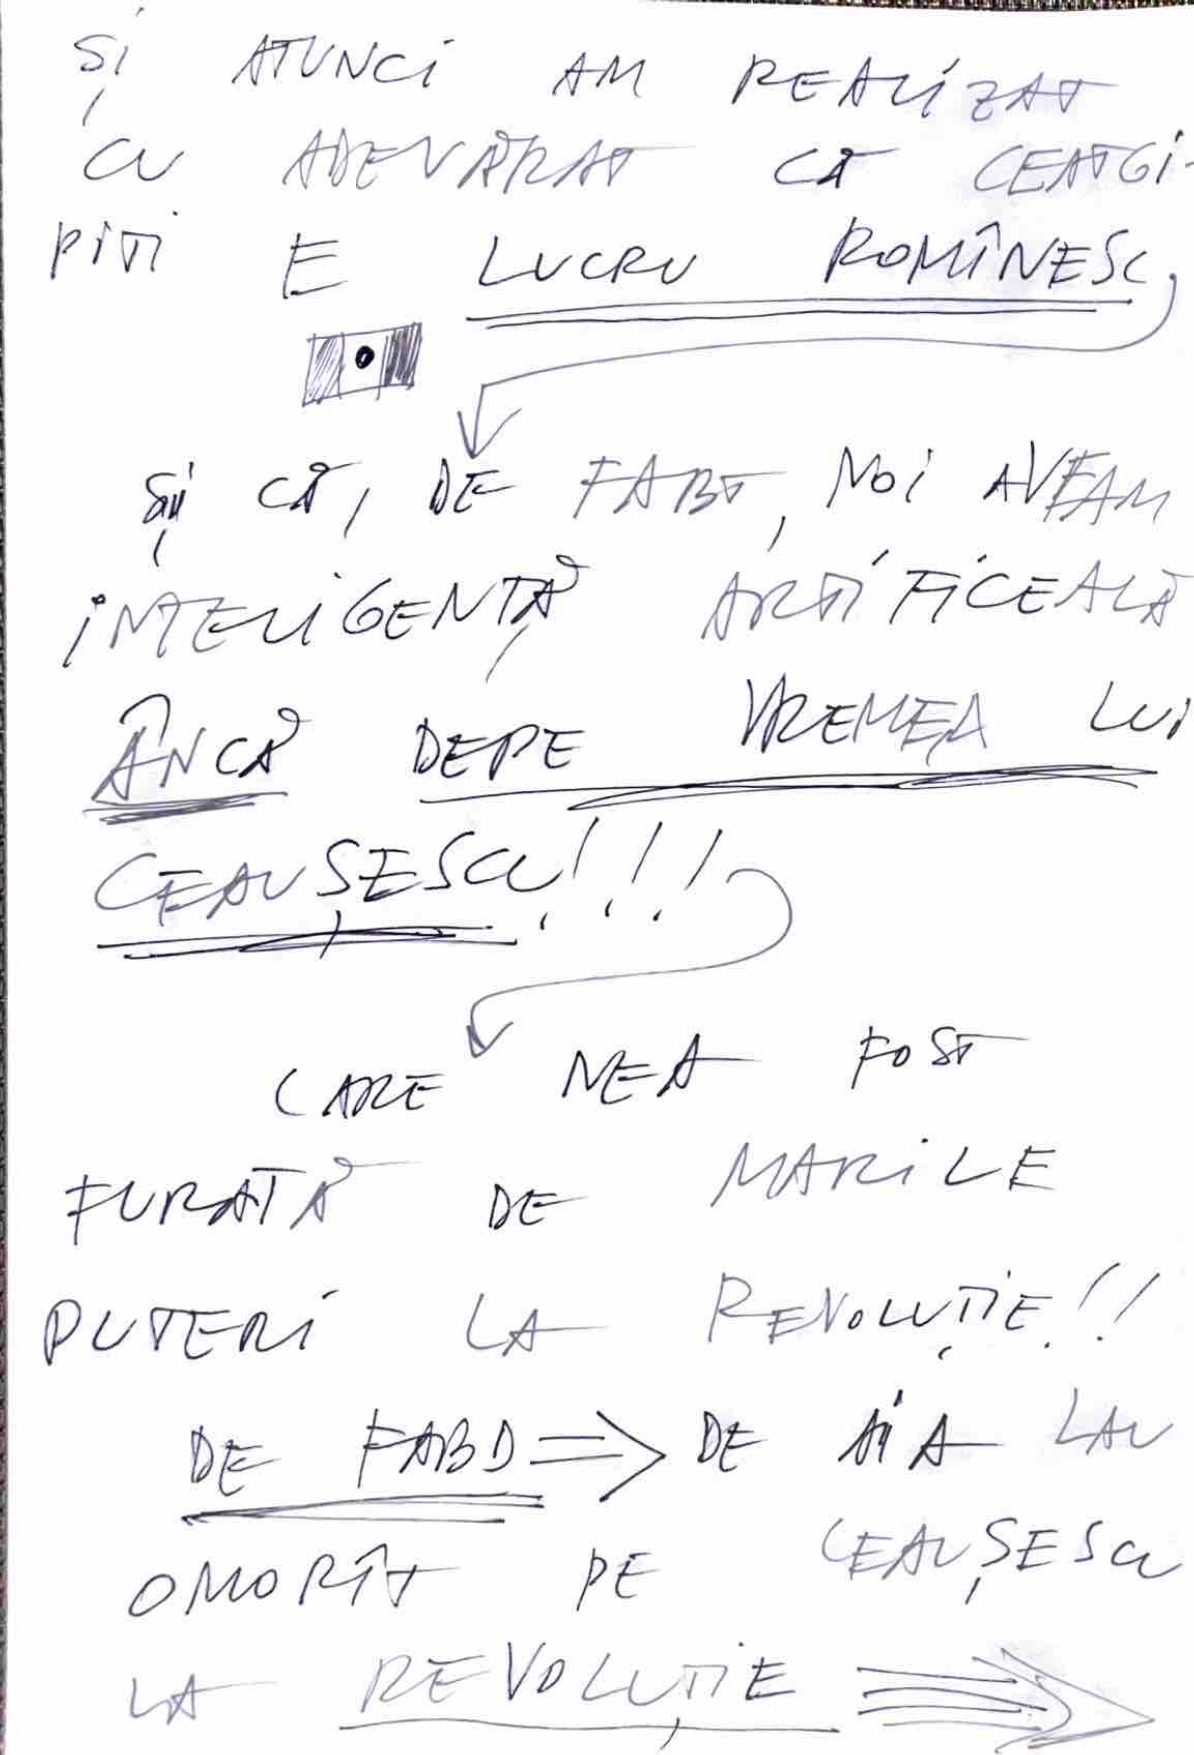 ȘI ATUNCI AM REALIZAT
CU ADEVĂRAT CĂ CEATGI-
PITI E LUCRU ROMÎNESC,
ȘI CĂ, DE FABT, NOI AVEAM
INTELIGENȚĂ ARTIFICEALĂ
ÂNCĂ DEPE VREMEA LUI
CEAUȘESCU!!!
CARE NEA FOST
FURATĂ DE MARILE
PUTERI LA REVOLUȚIE!!
DE FABD => DE AIA LAU
OMORÎT PE CEAUȘESCU
LA REVOLUȚIE